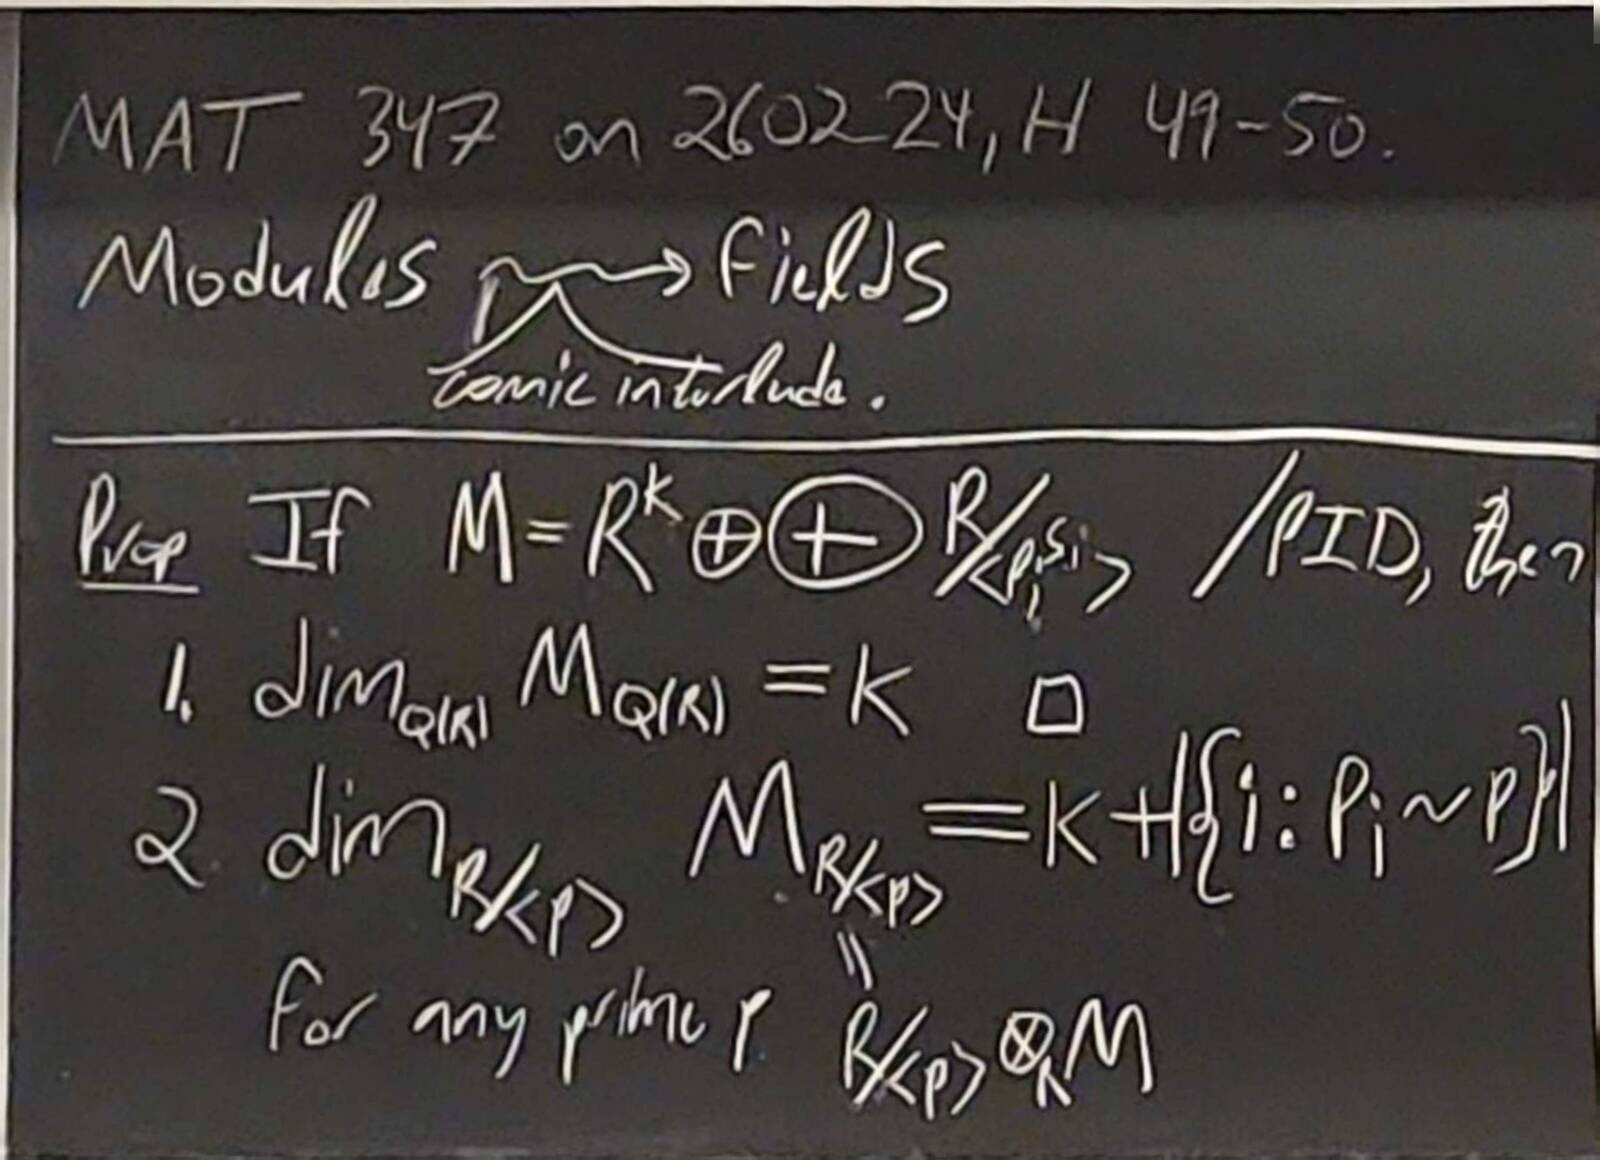 MAT 347 on 260224, H 49-50.
Modules ⇝ Fields
comic interlude.
Prop If M = R^k ⊕ ⨁ R/<p_i^{s_i}> /PID, then
1. dim_{Q(R)} M_{Q(R)} = k □
2 dim_{R/<p>} M_{R/<p>} = k + |{i: p_i ~ p}|
||
for any prime p R/<p> ⊗_R M